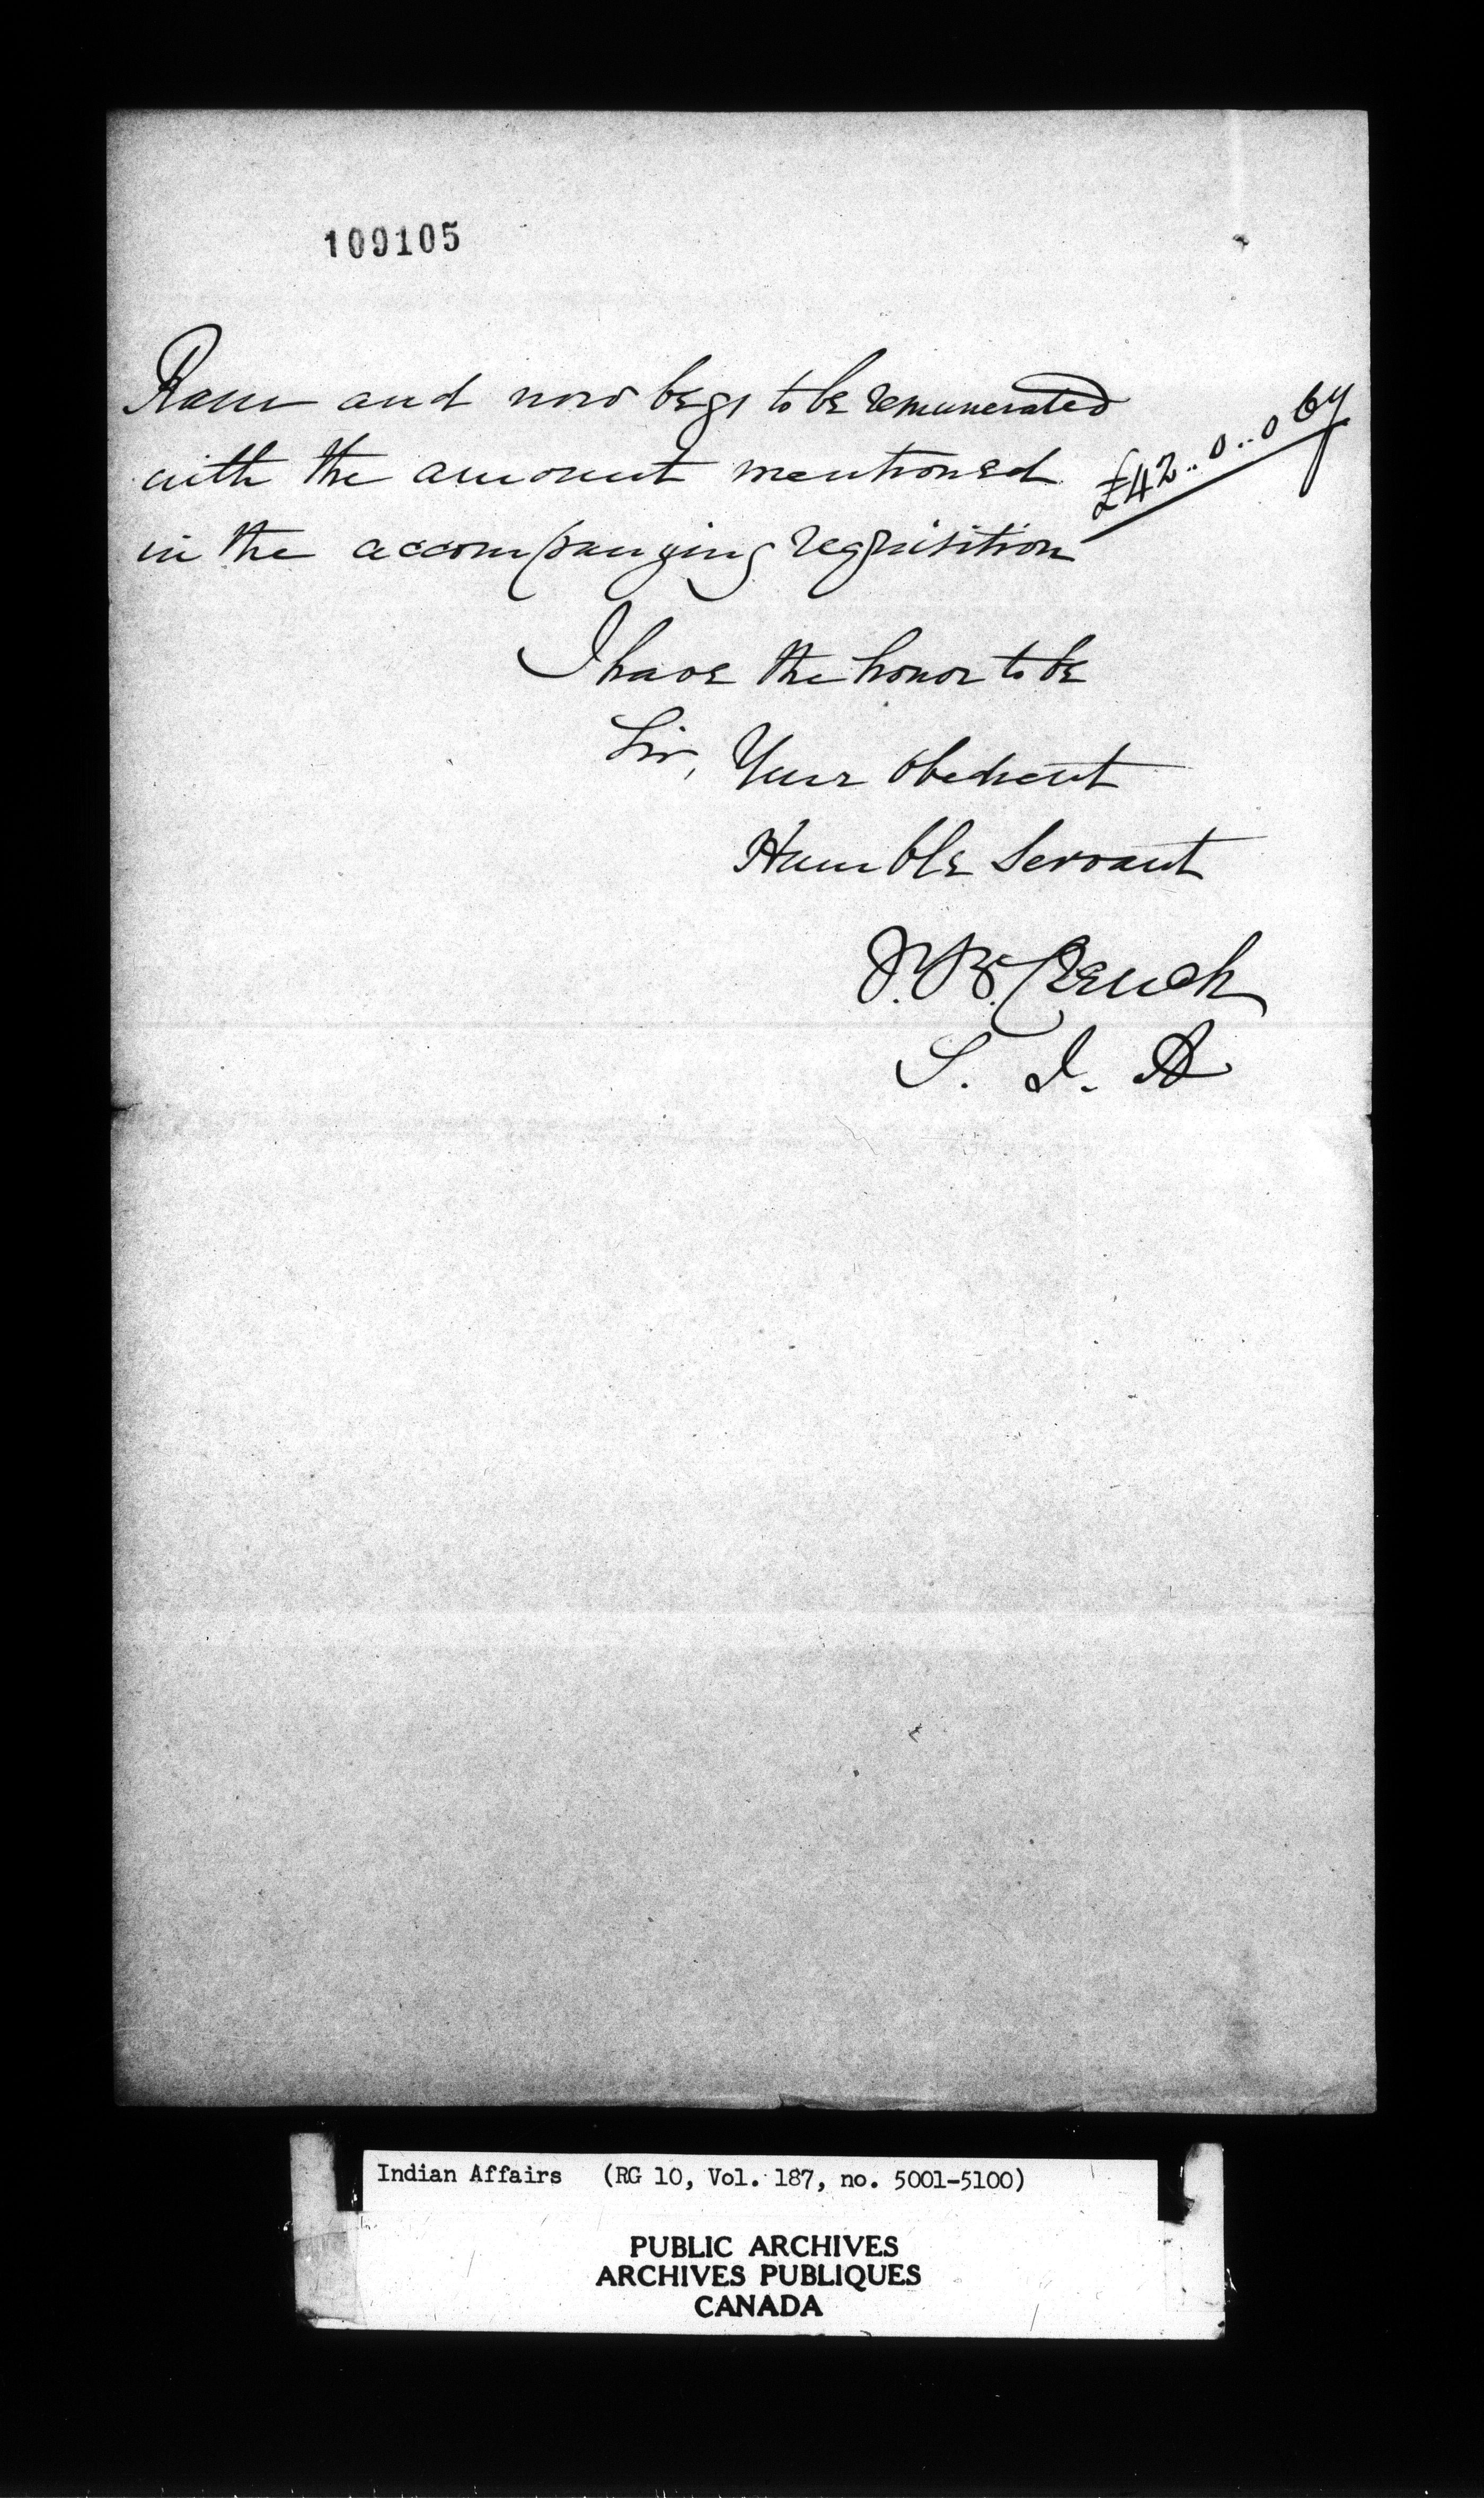 109105
Ram and now begs to be remunerated
with the amount mentioned £42..0..0 Cy
in the accompanying requisition
I have the honor to be
Sir, Your obedient
Humble Servant
J. B. Clench
S. I. A
Indian Affairs (RG 10, Vol. 187, no. 5001-5100)
PUBLIC ARCHIVES
ARCHIVES PUBLIQUES
CANADA